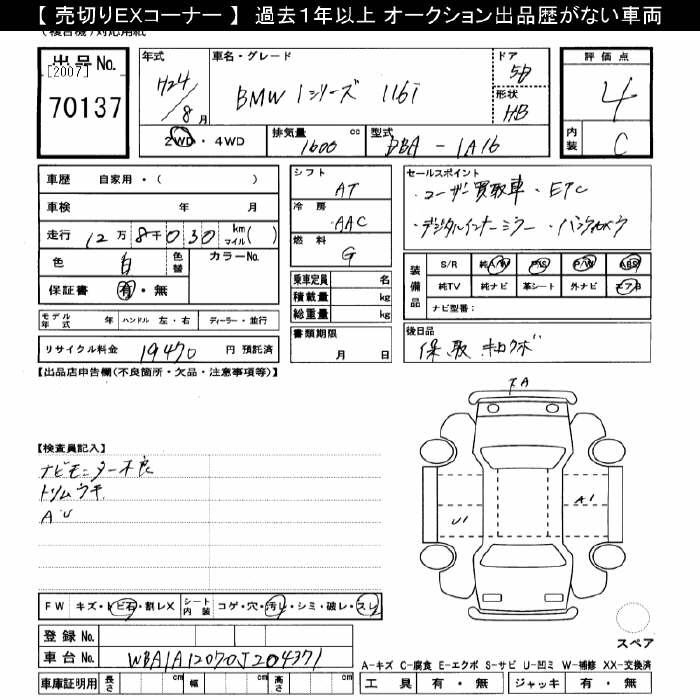 【 売切りEXコーナー 】 過去1年以上 オークション出品歴がない車両
(複合機)対応用紙
出品No.
[2007]
70137
年式
H24/8月
車名・グレード
BMW 1シリーズ 116i
ドア
5D
形状
HB
評価点
4
内装
C
2WD・4WD
排気量
1600 cc
型式
DBA-1A16
車歴 自家用・( )
車検 年 月
走行 12万8千030 km マイル( )
色 白 色替 カラーNo.
保証書 有・無
モデル年式 年 ハンドル 左・右 ディーラー・並行
リサイクル料金 19470 円 預託済
シフト
AT
冷房
AAC
燃料
G
乗車定員 名
積載量 kg
総重量 kg
書類期限
月 日
セールスポイント
・ユーザー買取車・ETC
・デジタルインナーミラー・バックカメラ
装備品
S/R 純A/W P/S P/W ABS
純TV 純ナビ 革シート 外ナビ エアB
ナビ型番:
後日品
保 取 キロクボ
【出品店申告欄(不良箇所・欠品・注意事項等)】
【検査員記入】
ナビモニター不良
トリムウキ
AU
FA
A1
U1
FW キズ・トビ石・割レX シート内装 コゲ・穴・汚レ・シミ・破レ・スレ
登録No.
車台No. WBA1A12070J204371
車庫証明用 長さ cm 幅 cm 高さ cm
スペア
A-キズ C-腐食 E-エクボ S-サビ U-凹ミ W-補修 XX-交換済
工具 有・無 ジャッキ 有・無